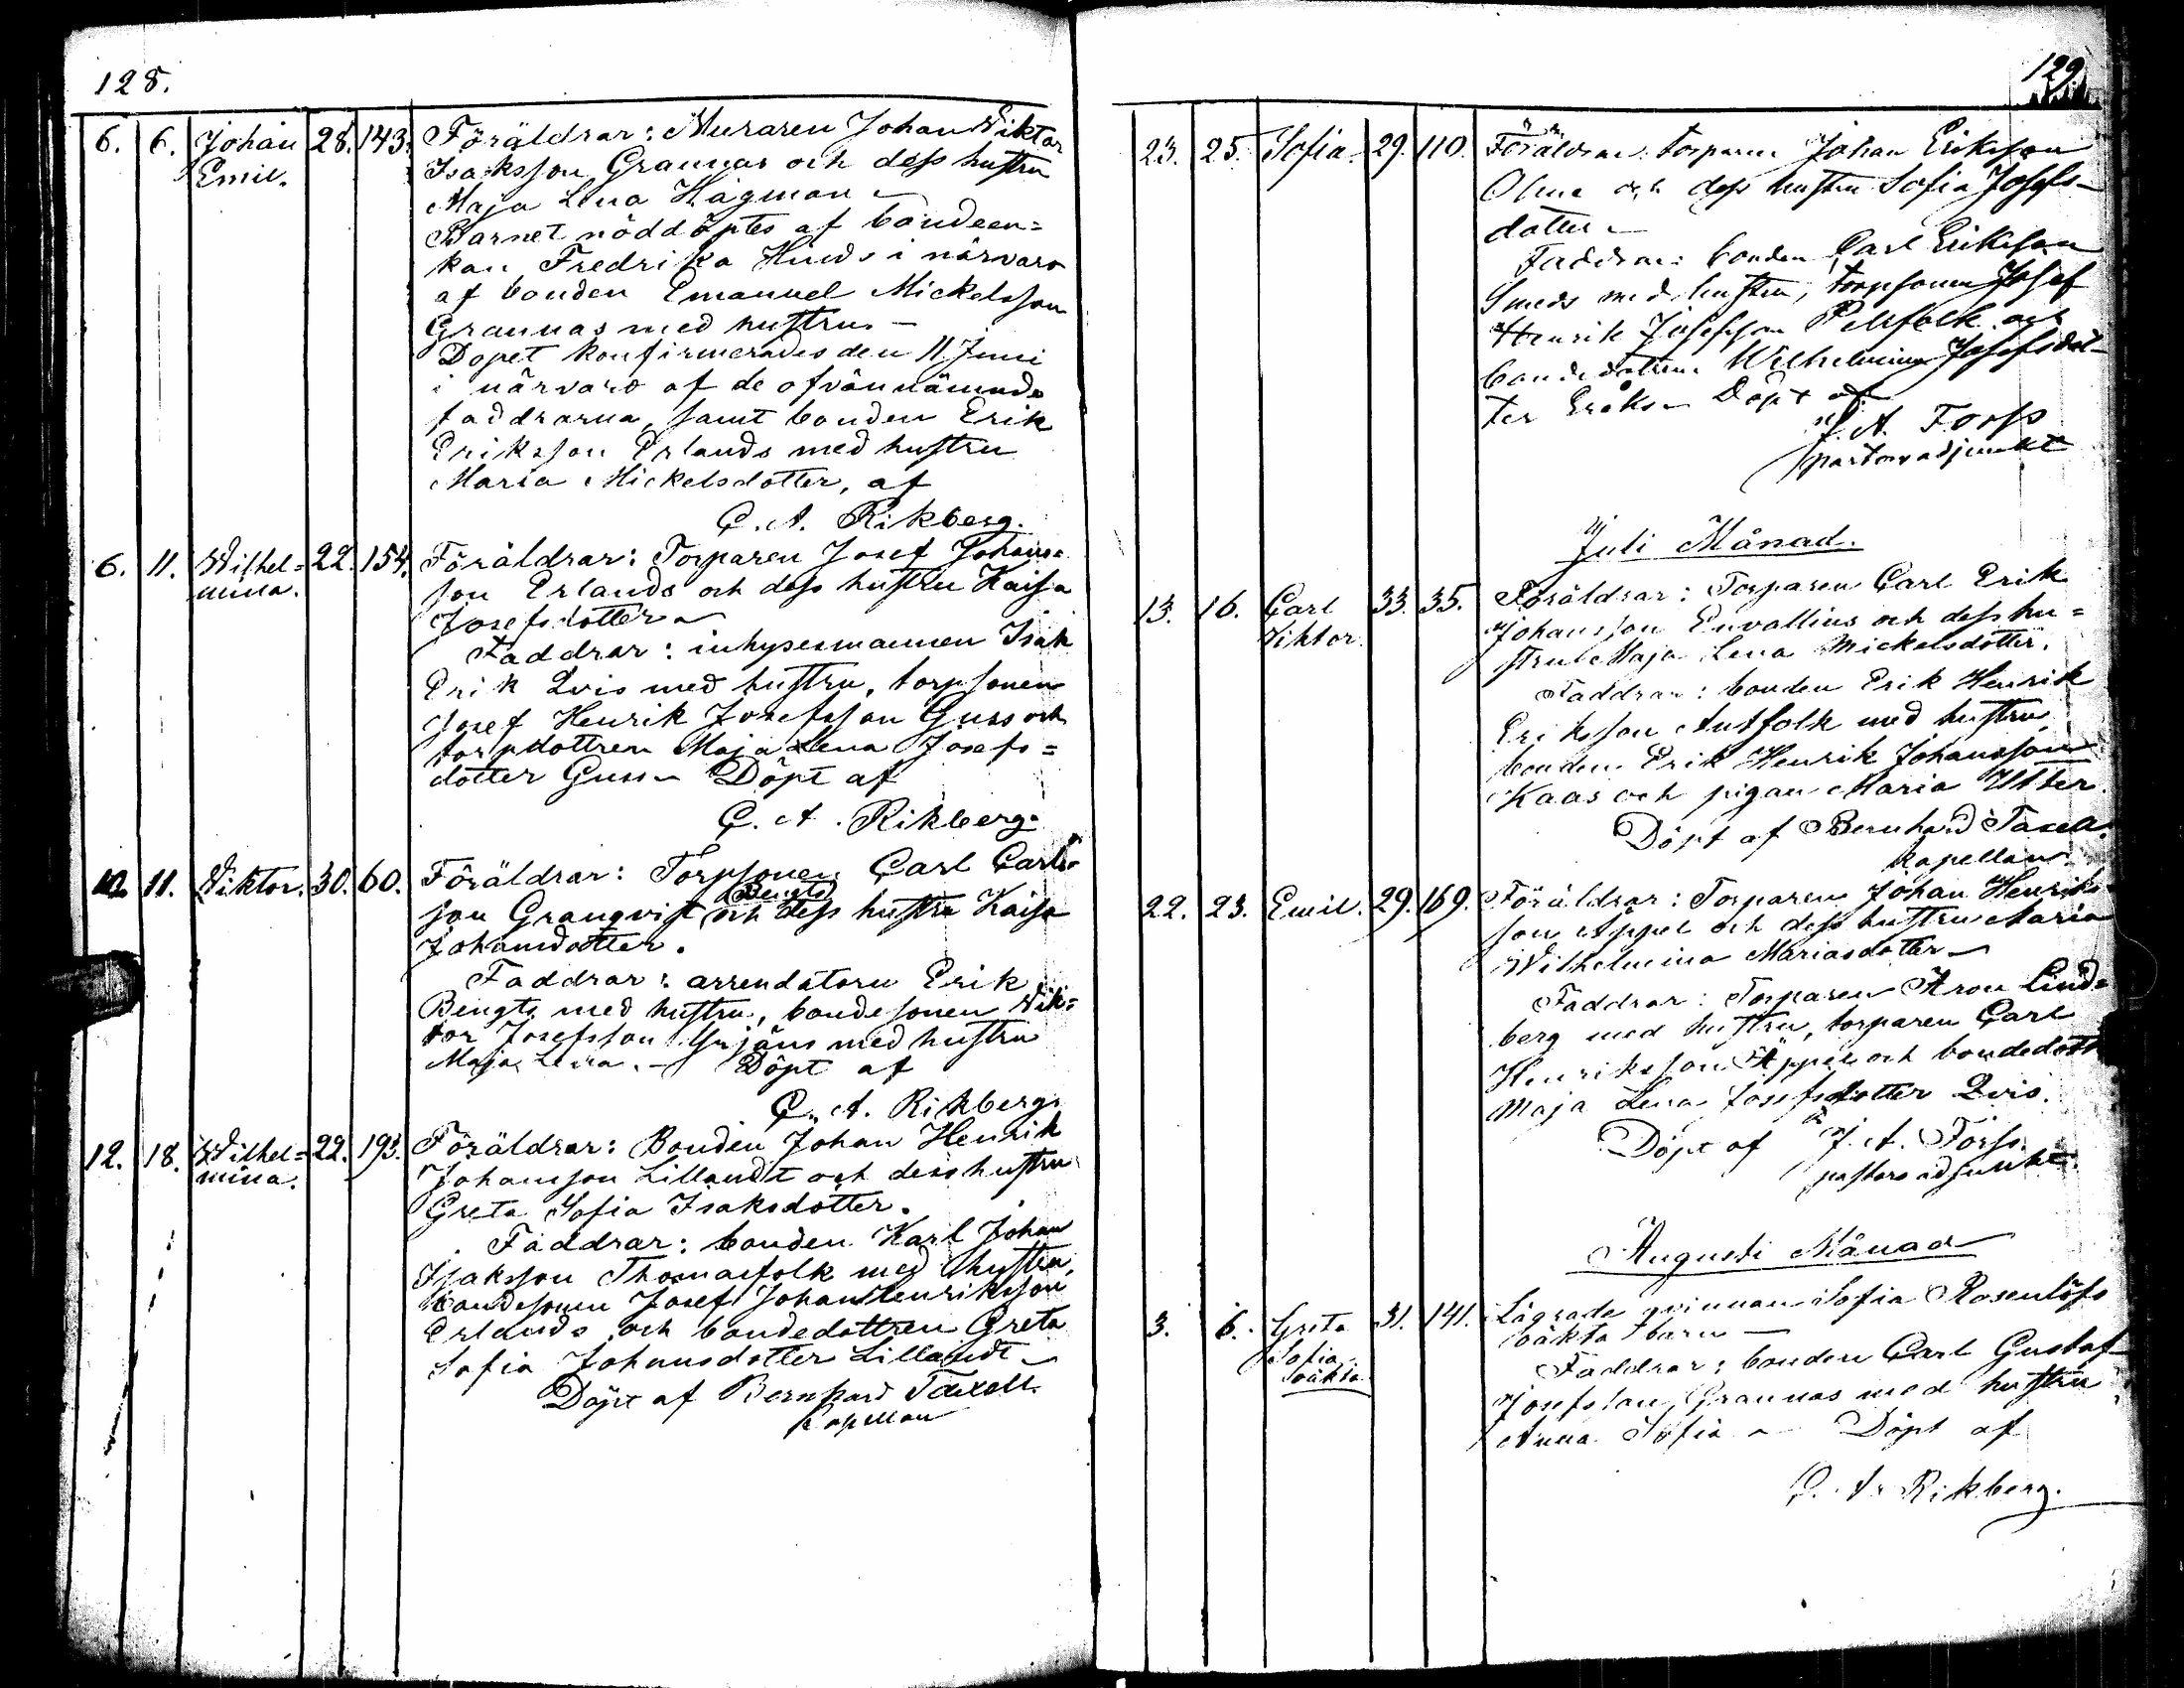 128.
6. 6. Johan 28. 143. Föräldrar: Muraren Johan Wiktor
Emil. Isaksson Grannas och dess hustru
Maja Lena Hägman –
Barnet nöddöptes af bondeen=
kan Fredrika Hinds i närvaro
af bonden Emanuel Mickelsson
Grannas med hustru –
Dopet konfirmerades den 11 Juni
i närvaro af de ofvannämnde
faddrarna, samt bonden Erik
Eriksson Erlands med hustru
Maria Mickelsdotter, af
C. A. Rikberg.
6. 11. Wilhel= 22. 154. Föräldrar: Torparen Josef Johans=
mina. son Erlands och dess hustru Kaisa
Josefsdotter –
Faddrar: inhysesmannen Isak
Erik Qvis med hustru, torpsonen
Josef Henrik Josefsson Guss och
torpdottren Maja Lena Josefs=
dotter Guss – Döpt af
C. A. Rikberg.
10. 11. Viktor. 30. 60. Föräldrar: Torpsonen Carl Carls=
Bengts
son Granqvist och dess hustru Kaisa
Johansdotter.
Faddrar: arrendatorn Erik
Bengts med hustru, bondesonen Wik=
tor Josefsson Örjäns med hustru
Maja Lena. – Döpt af
C. A. Rikberg.
12. 18. Wilhel= 22. 193. Föräldrar: Bonden Johan Henrik
mina. Johansson Lillandt och dess hustru
Greta Sofia Isaksdotter.
Faddrar: bonden Karl Johan
Isaksson Thomasfolk med hustru,
bondesonen Josef Johan Henriksson
Erlands och bondedottren Greta
Sofia Johansdotter Lillandt –
Döpt af Bernhard Taxell.
kapellan
129.
23. 25. Sofia. 29. 110. Föräldrar: torparen Johan Eriksson
Olme och dess hustru Sofia Josefs-
dotter –
Faddrar: bonden Carl Eriksson
Smeds med hustru, torpsonen Josef
Henrik Josefsson Pellfolk och
bondedottren Wilhelmina Josefsdot-
ter – Döpt af
J. A. Forss
pastorsadjunkt
Juli Månad.
13. 16. Carl 33. 35. Föräldrar: Torparen Carl Erik
Viktor. Johansson Envallius och dess hu=
stru Maja Lena Mickelsdotter.
Faddrar: bonden Erik Henrik
Eriksson Antfolk med hustru,
bonden Erik Henrik Johansson
Kaas och pigan Maria Utter.
Döpt af Bernhard Taxell.
kapellan.
22. 23. Emil. 29. 169. Föräldrar: Torparen Johan Henriks-
son Äppel och dess hustru Maria
Wilhelmina Mariasdotter –
Faddrar: Torparen Aron Lind=
berg med hustru, torparen Carl
Henriksson Äppel och bondedott
Maja Lena Josefsdotter Qvis.
Döpt af J. A. Forss.
pastorsadjunkt.
Augusti Månad
3. 6. Greta 31. 141. Lägrade qvinnan Sofia Rosenlöfs
Sofia oäkta barn –
oäkta Faddrar: bonden Carl Gustaf
Josefsson Grannas med hustru
Anna Sofia – Döpt af
C. A. Rikberg.